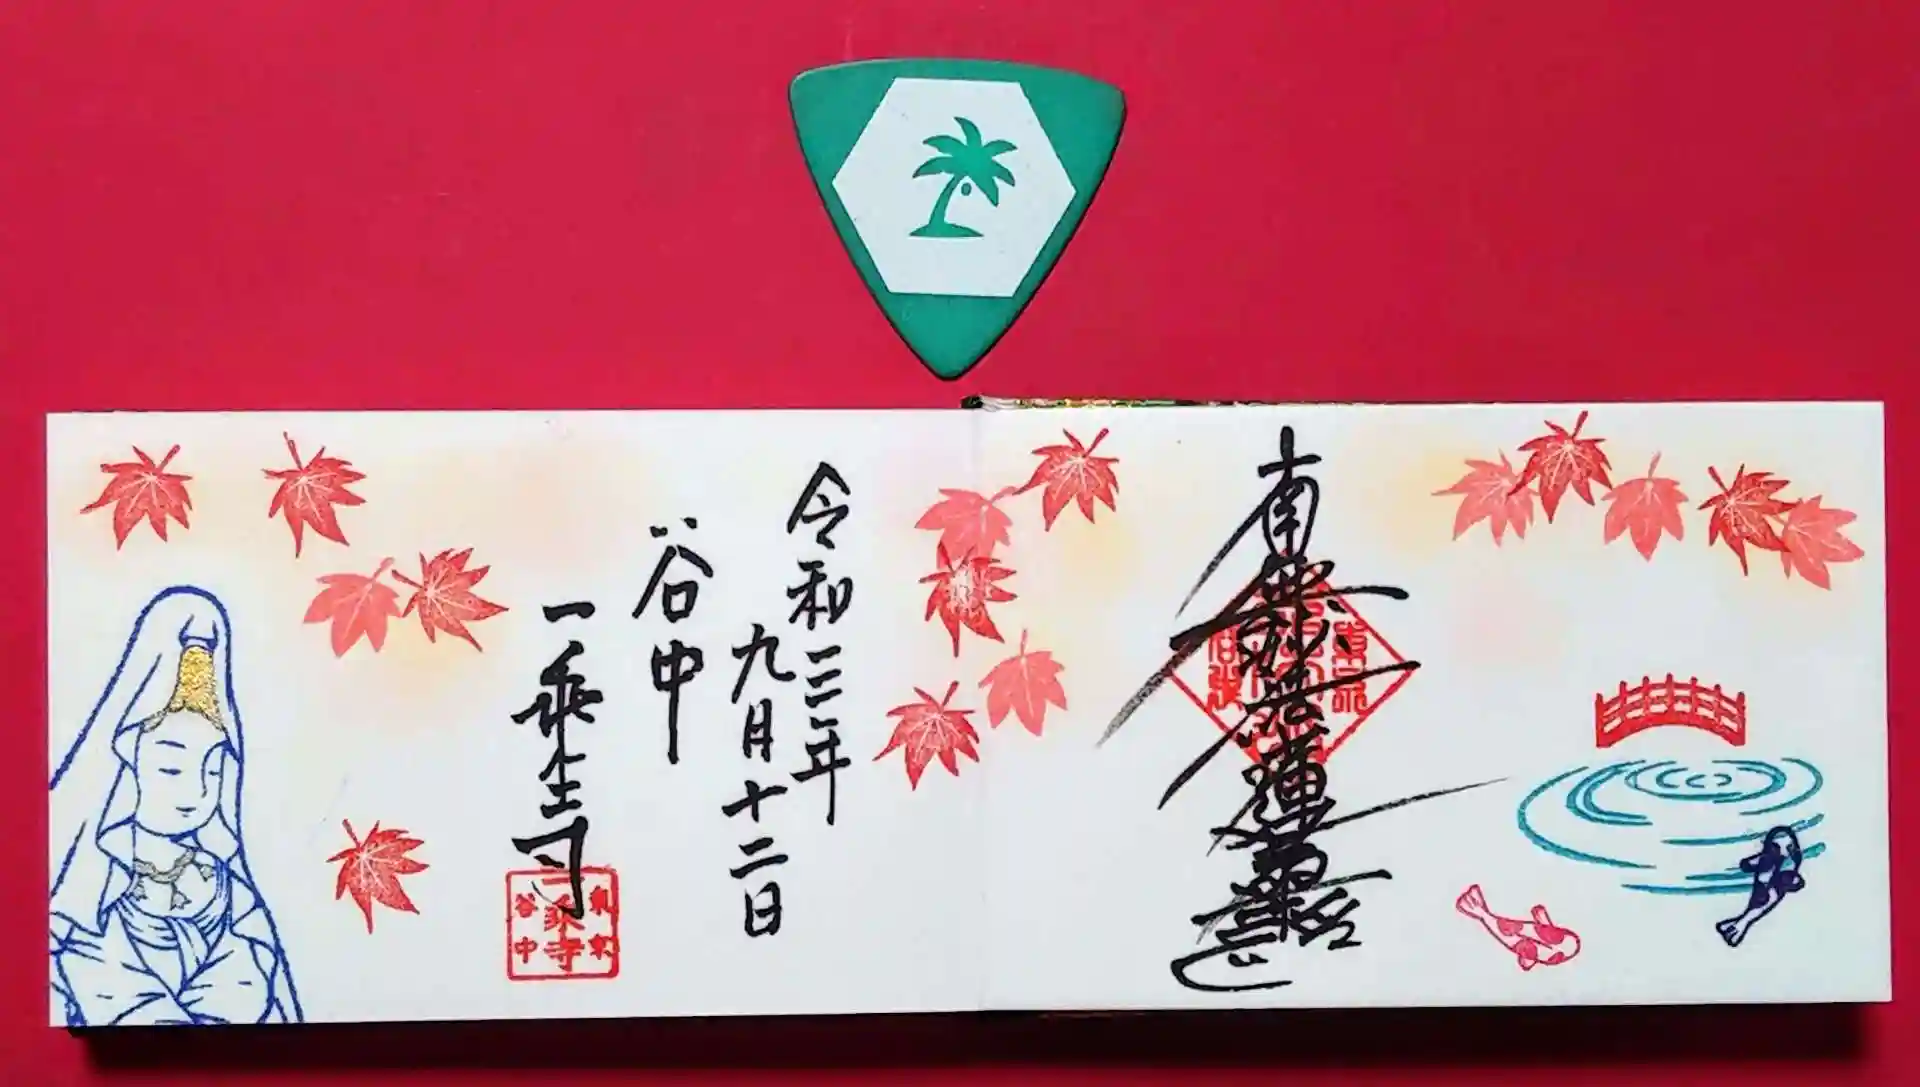 南無妙法蓮華経
令和三年
九月十二日
谷中
一乗寺
東京
一乗寺
谷中